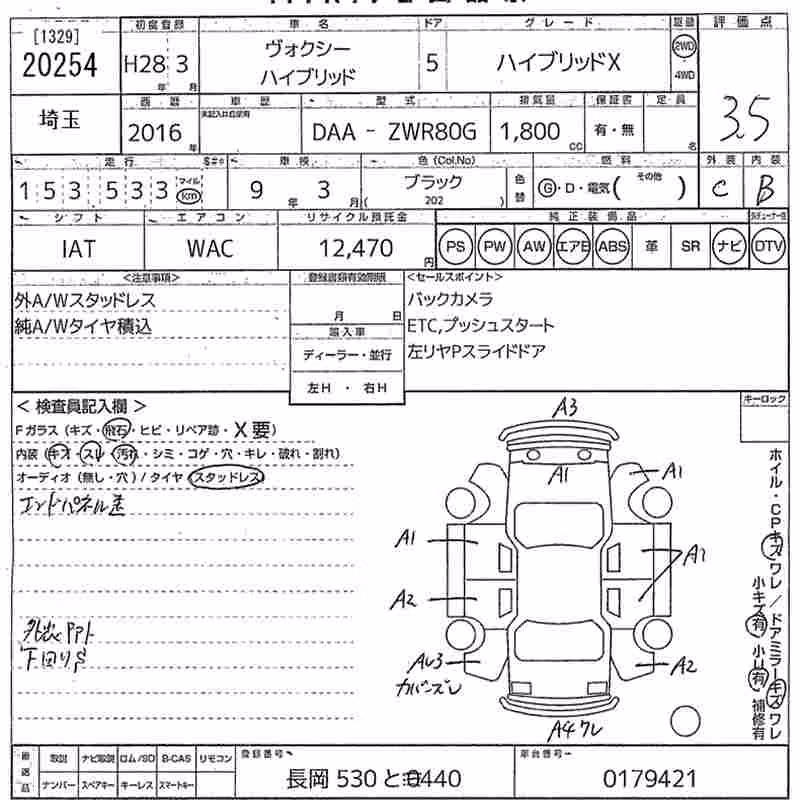 [1329]
20254
初度登録
車名
ドア
グレード
駆動
評価点
H28年3月
ヴォクシー
ハイブリッド
5
ハイブリッドX
2WD
4WD
3.5
埼玉
西暦
車歴
型式
排気量
保証書
定員
2016年
未記入は自家用
DAA - ZWR80G
1,800cc
有・無
名
走行
$#*
車検
色(Col.No)
燃料
外装
内装
153,533
マイル
km
9年3月
ブラック
( 202 )
色替
G・D・電気(その他 )
C
B
シフト
エアコン
リサイクル預託金
純正装備品
IAT
WAC
12,470円
PS
PW
AW
エアB
ABS
革
SR
ナビ
DTV
<注意事項>
登録書類有効期限
<セールスポイント>
外A/Wスタッドレス
純A/Wタイヤ積込
月 日
輸入車
ディーラー・並行
左H ・ 右H
バックカメラ
ETC,プッシュスタート
左リヤPスライドドア
< 検査員記入欄 >
キーロック
Fガラス(キズ・飛石・ヒビ・リペア跡・X要)
内装(キズ・スレ・汚れ・シミ・コゲ・穴・キレ・破れ・割れ)
オーディオ(無し・穴)/タイヤ(スタッドレス)
エンドパネル歪
下回りS
A3
A1
A1
A1
A1
A2
AU3
カバーズレ
A2
A4ワレ
ホイル・CPキズワレ/ドアミラーキズワレ
小キズ有 小U有 補修有
返送品
取説
ナビ取説
ロム/SD
B-CAS
リモコン
ナンバー
スペアキー
キーレス
スマートキー
登録番号
長岡 530 と 0440
車台番号
0179421